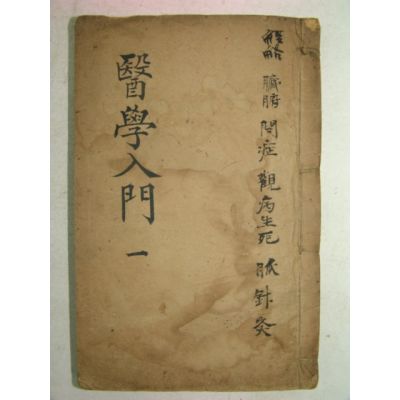 臟腑 問症 觀病生死 脈 針灸
醫學入門 一